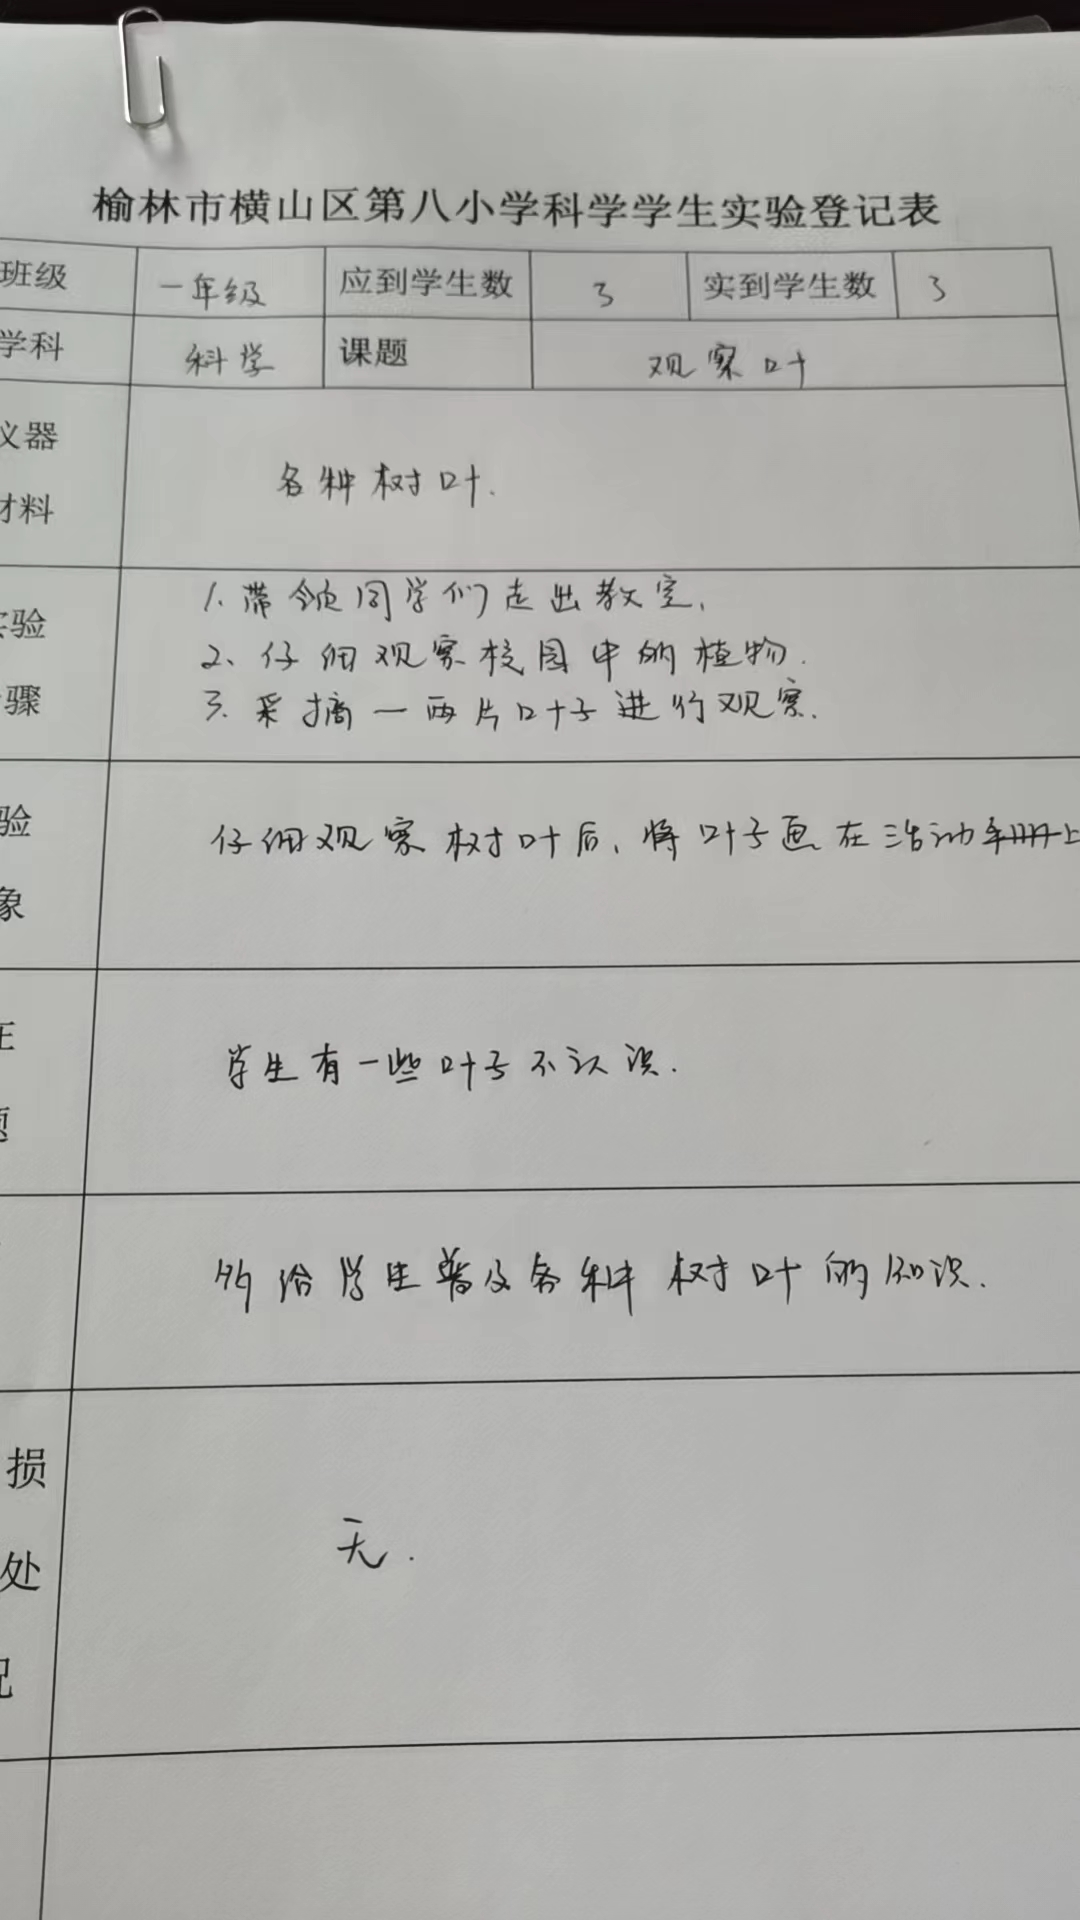 榆林市横山区第八小学科学学生实验登记表
班级 一年级 应到学生数 3 实到学生数 3
学科 科学 课题 观察叶
仪器
材料
各种树叶.
1.带领同学们走出教室.
实验
2、仔细观察校园中的植物.
骤
3.采摘一两片叶子进行观察.
验
仔细观察树叶后,将叶子画在活动手册上
象
在
学生有一些叶子不认识.
题
多给学生普及各种树叶的知识.
损
无.
处
况